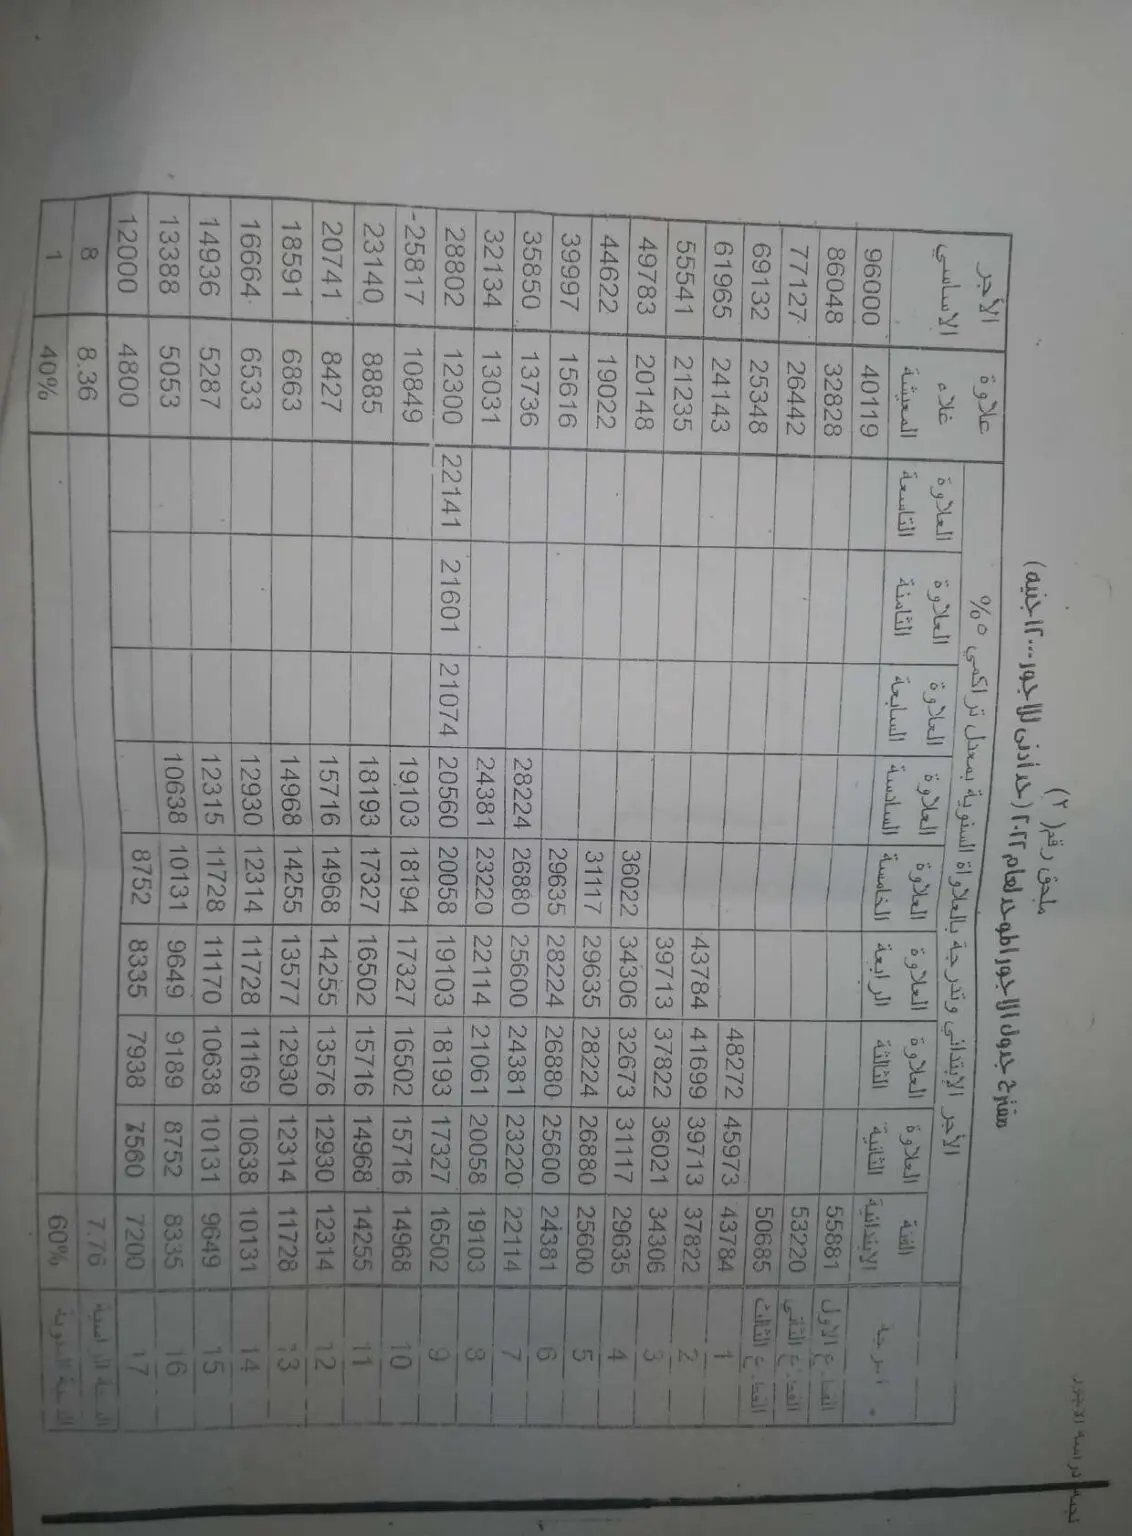 لجنة دراسة الاجور
ملحق رقم (٢)
مقترح جدول الاجور الموحد لعام ٢٠٢٢ (حد أدنى للاجور ١٢٠٠٠ جنيه)
الأجر الإبتدائي وتدرجة بالعلاواة السنوية بمعدل تراكمي ٥%
الدرجة الفئة الابتدائية العلاوة الثانية العلاوة الثالثة العلاوة الرابعة العلاوة الخامسة العلاوة السادسة العلاوة السابعة العلاوة الثامنة العلاوة التاسعة علاوة غلاء المعيشة الأجر الاساسي
القطاع الاول 55881 40119 96000
القطاع الثاني 53220 32828 86048
القطاع الثالث 50685 26442 77127
1 43784 45973 48272 25348 69132
2 37822 39713 41699 43784 24143 61965
3 34306 36021 37822 39713 21235 55541
4 29635 31117 32673 34306 36022 20148 49783
5 25600 26880 28224 29635 31117 19022 44622
6 24381 25600 26880 28224 29635 15616 39997
7 22114 23220 24381 25600 26880 28224 13736 35850
8 19103 20058 21061 22114 23220 24381 13031 32134
9 16502 17327 18193 19103 20058 20560 21074 21601 22141 12300 28802
10 14968 15716 16502 17327 18194 19103 10849 -25817
11 14255 14968 15716 16502 17327 18193 8885 23140
12 12314 12930 13576 14255 14968 15716 8427 20741
13 11728 12314 12930 13577 14255 14968 6863 18591
14 10131 10638 11169 11728 12314 12930 6533 16664
15 9649 10131 10638 11170 11728 12315 5287 14936
16 8335 8752 9189 9649 10131 10638 5053 13388
17 7200 7560 7938 8335 8752 4800 12000
7.76 8.36 8
60% 40% 1